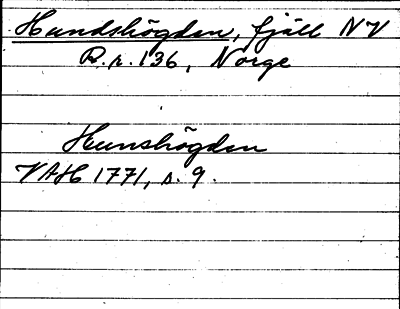 Hundshögden, fjäll NV
R.r. 136, Norge
Hunshögden
VAH 1771, s. 9.